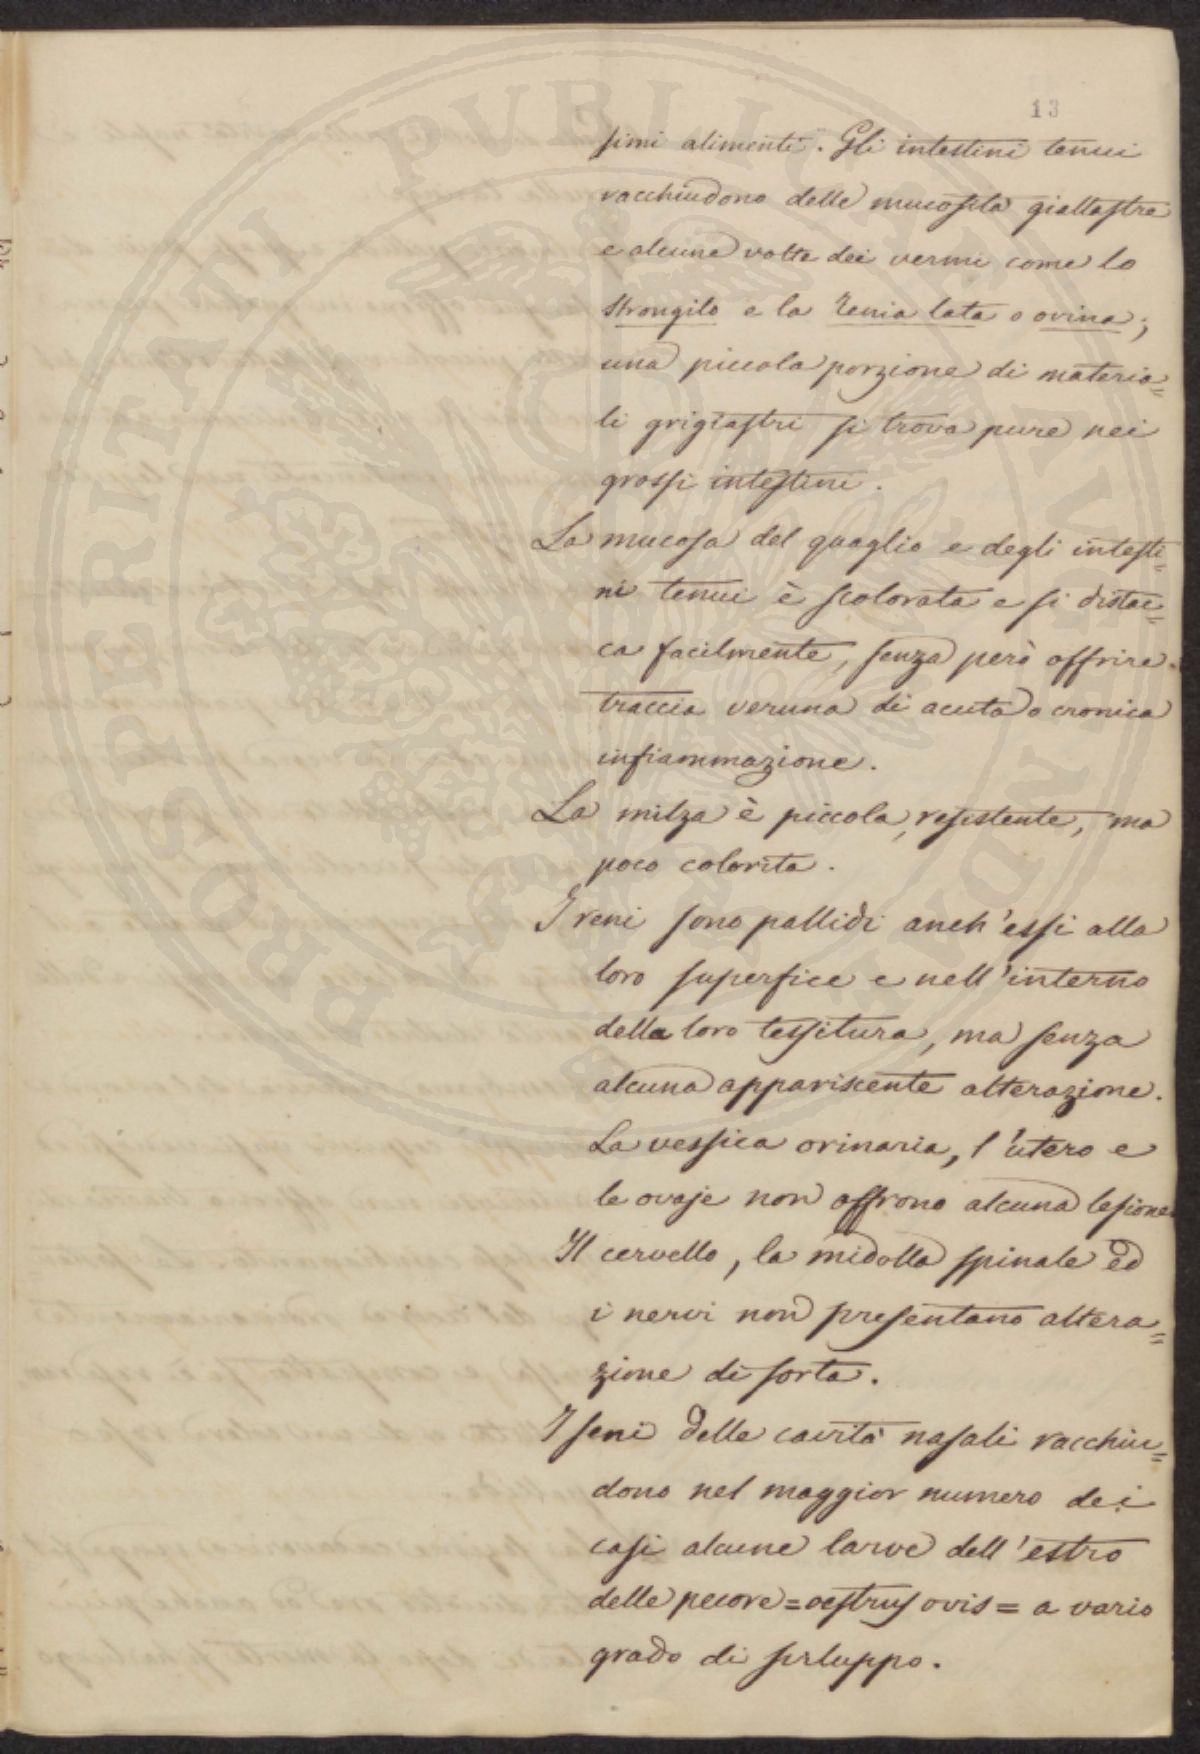 13
simi alimenti. Gli intestini tenui
racchiudono delle mucosità giallastre
e alcune volte dei vermi come lo
strongilo e la Tenia lata o ovina;
una piccola porzione di materia=
li grigiastri si trova pure nei
grossi intestini.
La mucosa del quaglio e degli intesti=
ni tenui è scolorata e si distac=
ca facilmente, senza però offrire
traccia veruna di acuta o cronica
infiammazione.
La milza è piccola, resistente, ma
poco colorita.
I reni sono pallidi anch'essi alla
loro superfice e nell'interno
della loro tessitura, ma senza
alcuna appariscente alterazione.
La vessica orinaria, l'utero e
le ovaje non offrono alcuna lesione.
Il cervello, la midolla spinale ed
i nervi non presentano altera=
zione di sorta.
I seni delle cavità nasali racchiu=
dono nel maggior numero dei
casi alcune larve dell'estro
delle pecore = oestrus ovis = a vario
grado di sviluppo.
PROSPERITATI PUBLICAE AUGENDAE